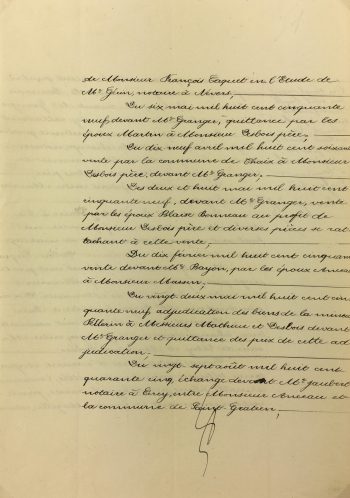 de Monsieur François Taquet en l'Etude de
Me Guin, notaire à Nevers,
Du six mai mil huit cent cinquante
neuf devant Me Granger, quittance par les
époux Martin à Monsieur Lesbois père,
Du dix neuf avril mil huit cent soixan
vente par la commune de Thaix à Monsieur
Lesbois père, devant Me Granger,
Des deux et huit mai mil huit cent
cinquante neuf, devant Me Granger, vente
par les époux Blaise Bonneau au profit de
Monsieur Lesbois père et diverses pièces se rat
tachant à cette vente,
Du dix février mil huit cent cinquan
vente devant Me Bayon, par les époux
à Monsieur Massin,
Du vingt deux mai mil huit cent cin
quante neuf, adjudication des biens de la mineure
Pellerin à Messieurs Mathieu et Lesbois devant
Me Granger et quittance des prix de cette ad
judication,
Du vingt-sept août mil huit cent
quarante cinq échange devant Me Jaubert
notaire à Cercy, entre Monsieur et
la commune de Saint-Gratien,